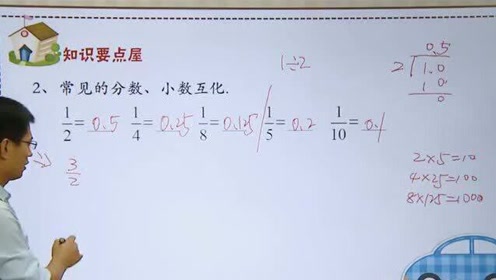 知识要点屋
2、常见的分数、小数互化.
1/2=0.5 1/4=0.25 1/8=0.125 1/5=0.2 1/10=0.1
3/2
1÷2
0.5
2 1.0
1 0
0
2×5=10
4×25=100
8×125=1000